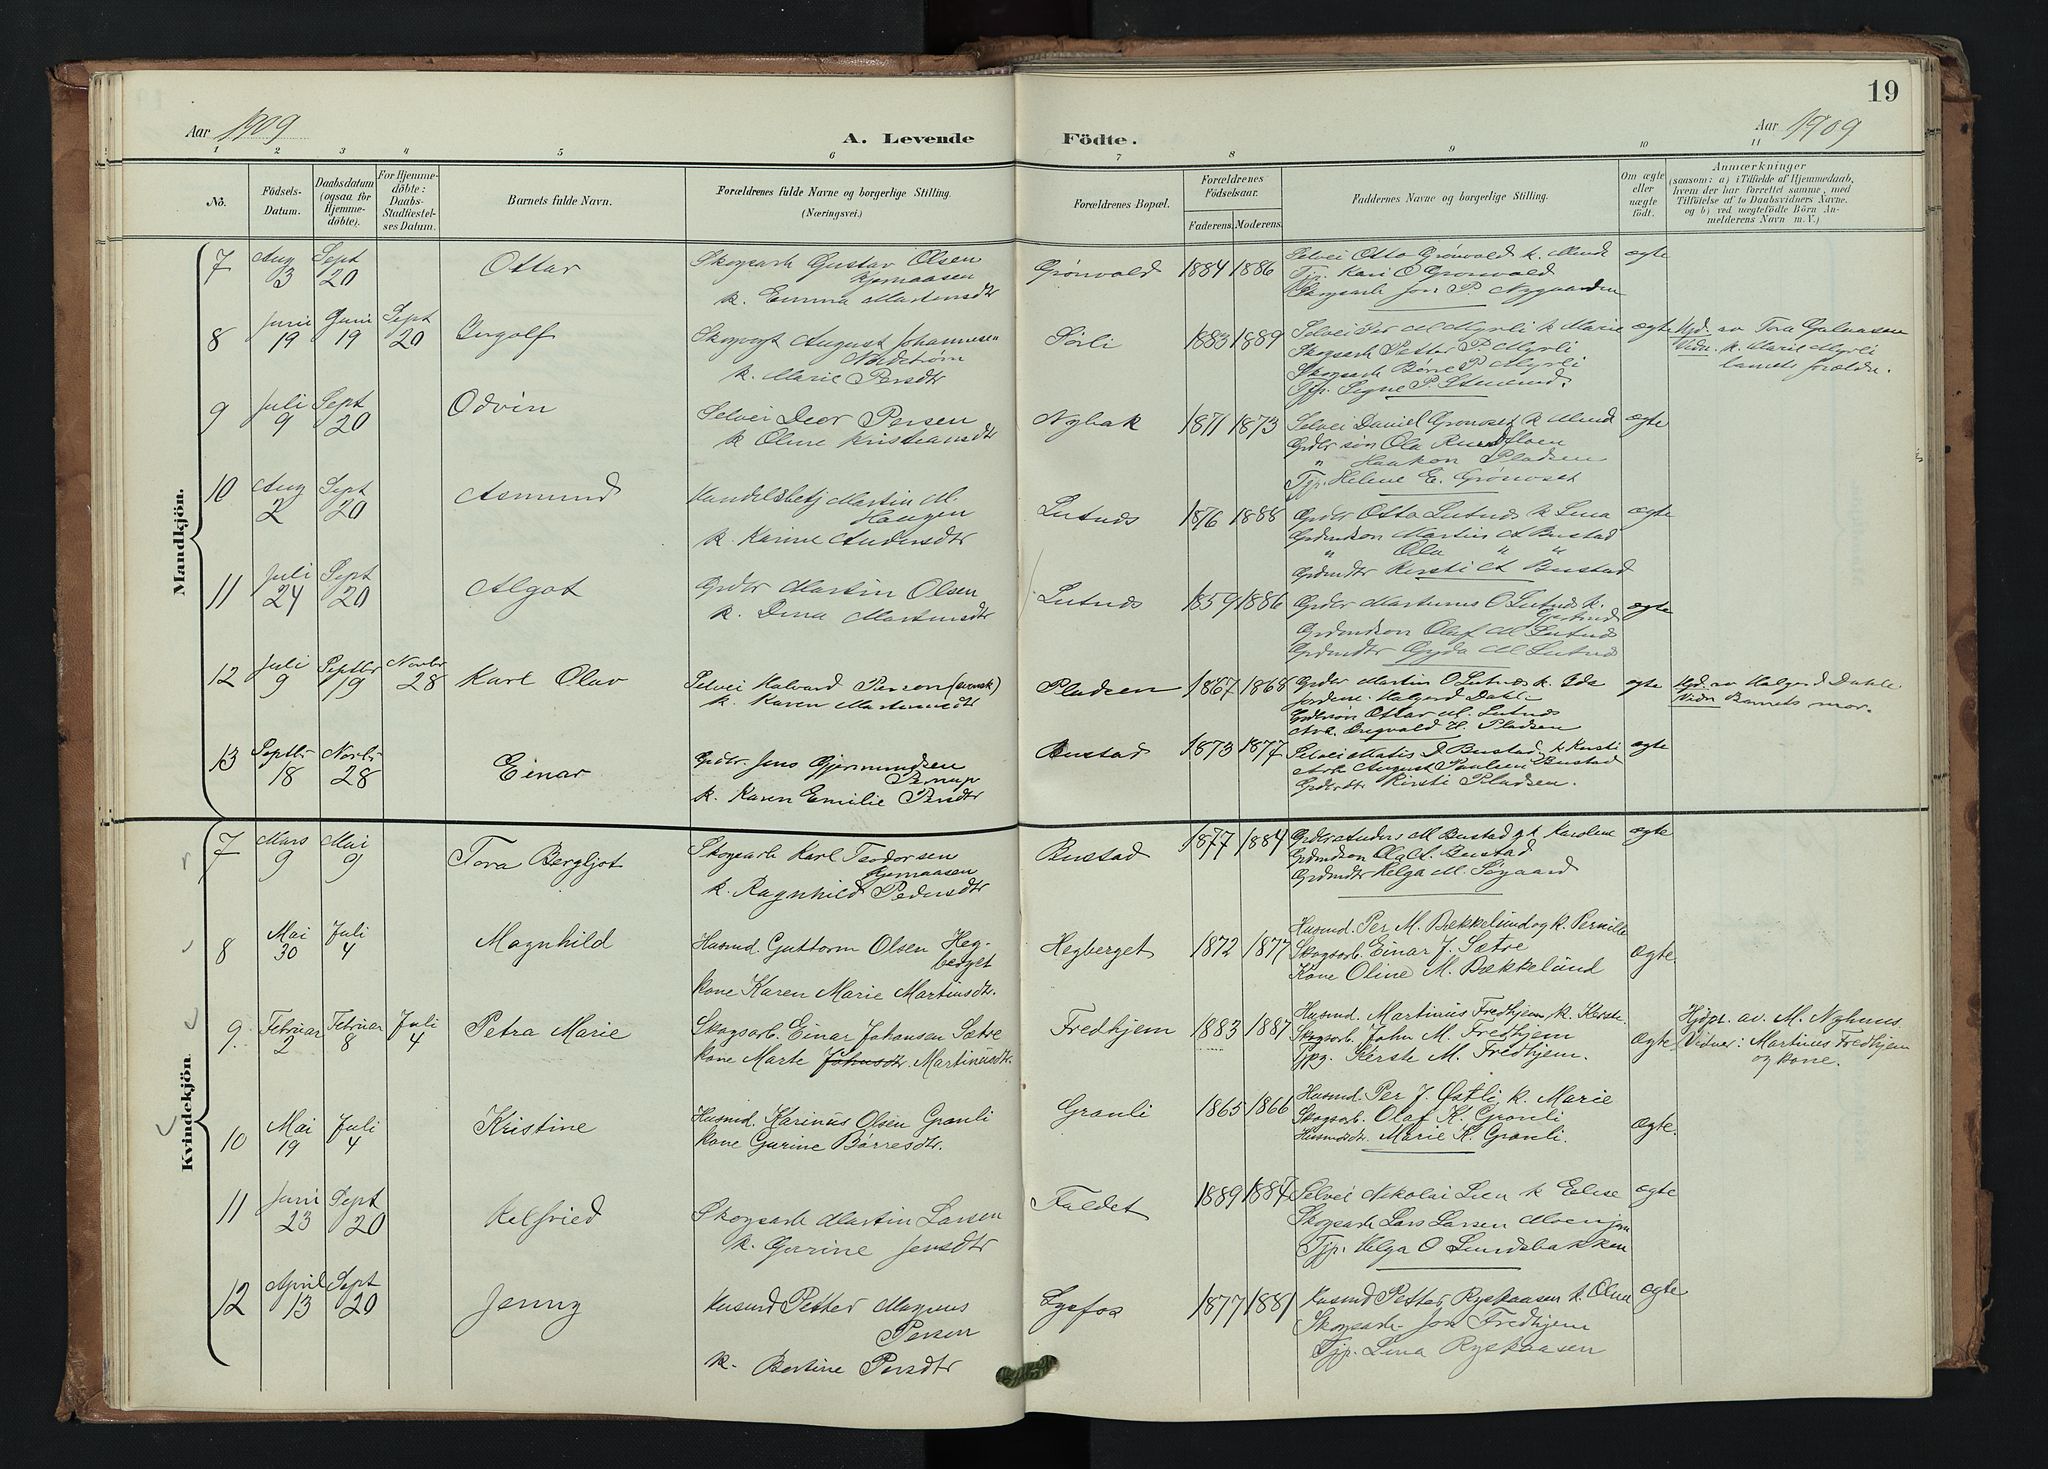 19
Aar 1909
A. Levende
Födte.
Aar 1909
1 2 3 4 5 6 7 8 9 10 11
Nô.
Födsels-
Datum.
Daabsdatum
(ogsaa for
Hjemme-
döbte).
For Hjemme-
döbte:
Daabs-
Stadfæstel-
ses Datum.
Barnets fulde Navn.
Forældrenes fulde Navne og borgerlige Stilling.
(Næringsvei.)
Forældrenes Bopæl.
Forældrenes
Födselsaar.
Faderens. Moderens.
Faddernes Navne og borgerlige Stilling.
Om ægte
eller
uægte
født.
Anmærkninger
(saasom: a) i Tilfælde af Hjemmedaab,
hvem der har forrettet samme, med
Tilföielse af to Daabsvidners Navne.
og b) ved uægtefödte Börn An-
melderens Navn m. V.)
Mandkjön.
7 Aug 3 Sept 20 Ottar
Skogsarb Gustav Olsen
Kjernaasen
k. Emma Martinsdtr
Grönvald 1884 1886
Selvei Otto Grönvald k.
Tjp. Kari O Gronvald
Skogsarb Jon P. Nygaarden
ægte
8 Juni 19 Juni 19 Sept 20 Ingolf
Skogvogt August Johannesen
k. Marie Persdtr
Sörli 1883 1889
Selvei Per M Myrli k Marie
Skogsarb Petter P Myrli
Skogsarb Börre P Myrli
Tjp. Signe P.
ægte
Hjd. av Tora Galaasen
Vidn. k. Marie Myrli
barnets forældre.
9 Juli 9 Sept 20 Odvin
Selvei Peder Persen
k Oline Kristiansdtr
Nybak 1871 1873
Selvei Daniel Grönoset k
Grder søn Ola
" Haakon Pladsen
Tjp. Helene E. Grönoset
ægte
10 Aug 2 Sept 20 Asmund
Handelsbetj Martin M.
Haugen
k. Karine Andersdtr
Lutnæs 1876 1888
Grder Otto Lutnæs k Lina
Grdmdsøn Martin A Bustad
" Ola " "
Grdmdtr Kirsti A Bustad
ægte
11 Juli 24 Sept 20 Algot
Grder Martin Olsen
k. Dina Martinsdtr
Lutnæs 1859 1886
Grder Martinus O Lutnæs k.
Grdmdsøn Olaf M Lutnæs
Grdmdtr Gyda M Lutnæs
ægte
12 Juli 9 Septbr 19 Novbr 28 Karl Olav
Selvei Halvard Person (svensk)
k. Karen Martinusdtr
Pladsen 1867 1868
Grder Martin O Lutnæs k. Ida
Jordem. Halgerd Dahl
Grdersøn Ottar M. Lutnæs
Ark. Ingvald H. Pladsen
ægte
Hjd. av Halgerd Dahle
Vidn Barnets mor.
13 Septbr 18 Novbr 28 Einar
Grdbr. Jens Gjermundsen
k. Karen Emilie Persdtr
Bustad 1873 1877
Selvei Matis D Bustad, k Kersti
Arb August Paulsen Bustad
Grderdtr Kirsti Pladsen.
ægte
Kvindekjön.
7 Mars 9 Mai 9 Tora Bergljot
Skogsarb Karl Teodorsen
Kjernaasen
k. Ragnhild Pedersdtr
Bustad 1877 1884
Grder Anders M Bustad og k Karoline
Grdmdsøn Ola A. Bustad
Grdmdtr Helga M. Søgaard
ægte
8 Mai 30 Juli 4 Magnhild
Husmd. Guttorm Olsen Heg-
berget
kone Karen Marie Martinusdtr.
Hegberget 1872 1877
Husmd. Per M. Bækkelund og k. Pernille
Skogsarb. Einar J. Sætre
Kone Oline M. Bækkelund
ægte.
9. Februar 2 Februar 8 Juli 4 Petra Marie
Skogsarb. Einar Johansen Sætre
kone Marte Johnsdtr. Martinusdtr.
Fredhjem 1883 1887
Husmd. Martinus Fredhjem, k. Kerste.
Skogsarb. John M. Fredhjem
Tjpg. Kerste M. Fredhjem.
ægte
Hjdpr. av. M. Nyhuus
Vidner: Martinus Fredhjem
og kone.
10 Mai 19 Juli 4 Kristine
Husmd. Karinus Olsen Granli
kone Gurine Børresdtr.
Granli 1865 1866
Husmd. Per J. Østli, k. Marie
Skogsarb. Olaf K. Granli
Husmdsdtr. Marie K. Granli.
ægte.
11 Juni 23 Sept 20 Helfried
Skogsarb Martin Larsen
k. Gurine Jensdtr
Faldet 1889 1884
Selvei Nikolai Lien k Elise
Skogsarb Lars Larsen Moenjon
Tjp. Helga O Lundebakken
ægte
12 April 13 Sept 20 Jenny
Husmd Petter Magnus
Persen
k. Bertine Persdtr
Lysfos 1877 1881
Husmd Petter Ryskaasen k. Olna
Skogsarb Jon Fredhjem
Tjp. Lina Ryskaasen
ægte